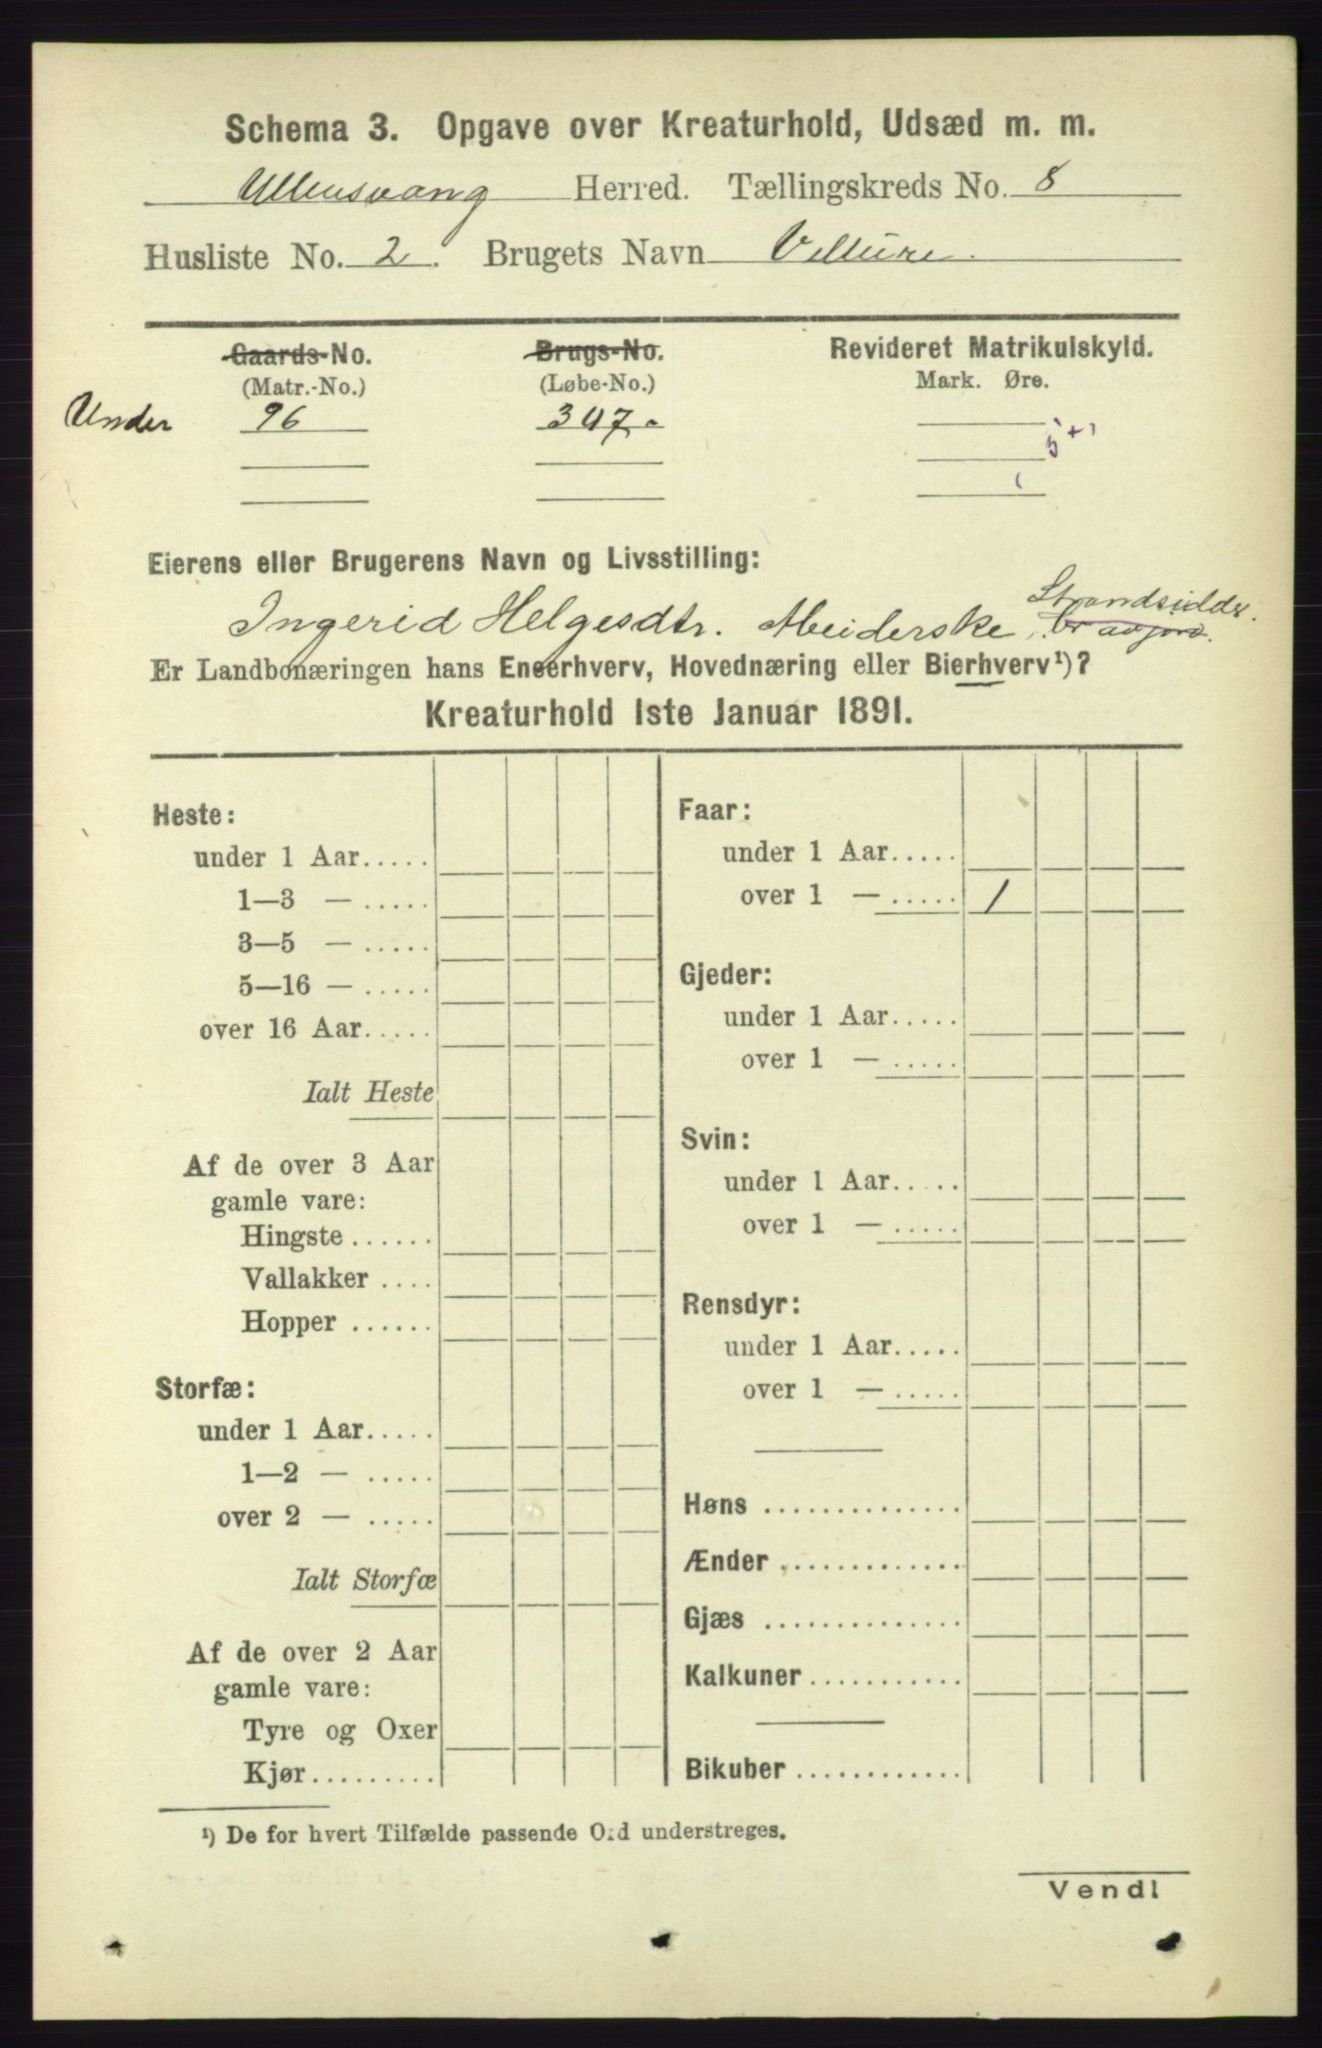 Schema 3. Opgave over Kreaturhold, Udsæd m. m.
Ullensvang Herred. Tællingskreds No. 8
Husliste No. 2. Brugets Navn Vellure.
Gaards-No. Brugs-No. Revideret Matrikulskyld.
(Matr.-No.) (Løbe-No.) Mark. Øre.
Under 96 347.
5+1
Eierens eller Brugerens Navn og Livsstilling:
Strandsidder.
Ingerid Helgesdtr. Meiderske,
Er Landbonæringen hans Eneerhverv, Hovednæring eller Bierhverv¹)?
Kreaturhold 1ste Januar 1891.
Heste:
under 1 Aar.....
1—3 — .....
3—5 — .....
5—16 — .....
over 16 Aar.....
Ialt Heste
Af de over 3 Aar
gamle vare:
Hingste ......
Vallakker ....
Hopper ......
Storfæ:
under 1 Aar.....
1—2 — .....
over 2 — .....
Ialt Storfæ
Af de over 2 Aar
gamle vare:
Tyre og Oxer
Kjør.........
Faar:
under 1 Aar.....
over 1 — ..... 1
Gjeder:
under 1 Aar.....
over 1 — .....
Svin:
under 1 Aar.....
over 1 — .....
Rensdyr:
under 1 Aar.....
over 1 — .....
Høns ..............
Ænder .............
Gjæs ..............
Kalkuner ...........
Bikuber ............
¹) De for hvert Tilfælde passende Ord understreges.
Vend!